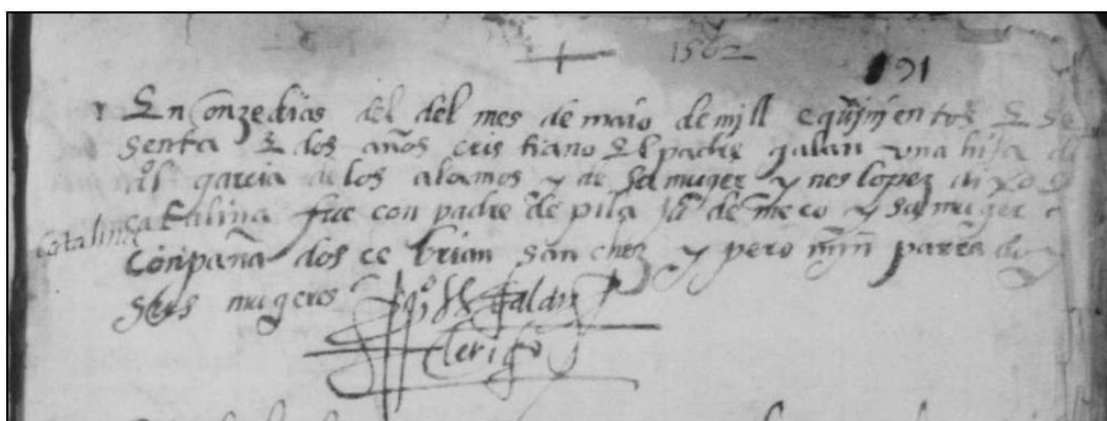 1562
191
En onze dias del del mes de maio de mjll e qujnjentos E se
senta E dos años cristiano El padre galan una hija de
garcia de los alamos y de su muger ynes lopez dixo
catalina fue con padre de pila de meco y su muger
Catalina
conpaña dos cebrian sanchez y pero mjn
seus mugeres galan
clerigo